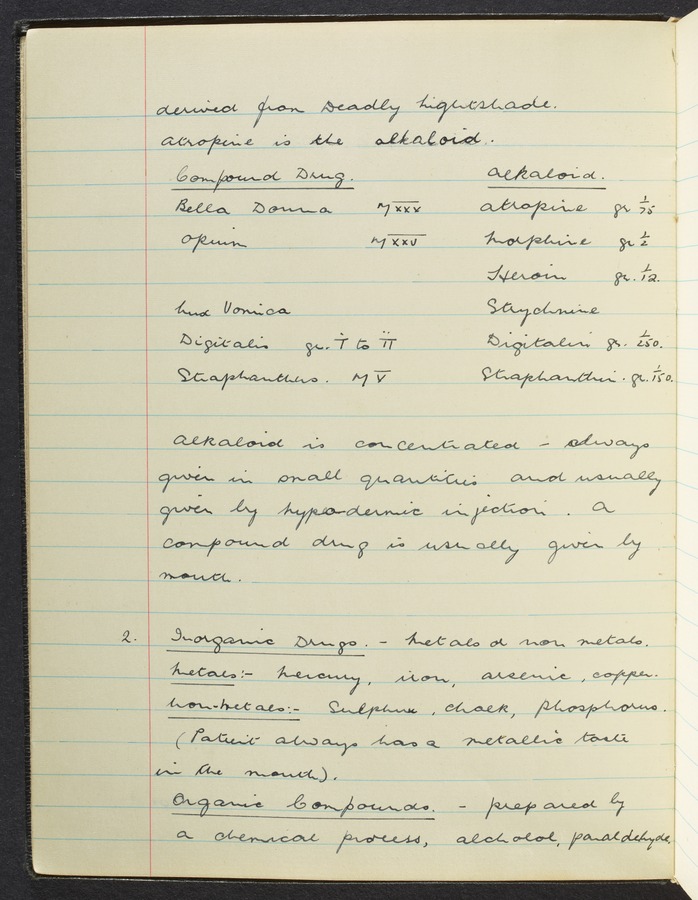 derived from Deadly Nightshade.
Atropine is the alkaloid.
Compound Drug. Alkaloid.
Bella Donna ♏xxx Atropine gr 1/75
Opium ♏xxv Morphine gr 1/2
Heroin gr. 1/12.
Nux Vomica Strychnine
Digitalis gr. i to ii Digitalin gr. 1/250.
Straphanthus. ♏v Straphanthin. gr. 1/150.
Alkaloid is concentrated - always
given in small quantities and usually
given by hypo-dermic injection. A
compound drug is usually given by
mouth.
2. Inorganic Drugs. - Metals or non metals.
Metals:- Mercury, iron, arsenic, copper.
Non-Metals:- Sulphur, chalk, Phosphorus.
(Patient always has a metallic taste
in the mouth).
Organic Compounds. - prepared by
a chemical process, alcholol, paraldehyde,